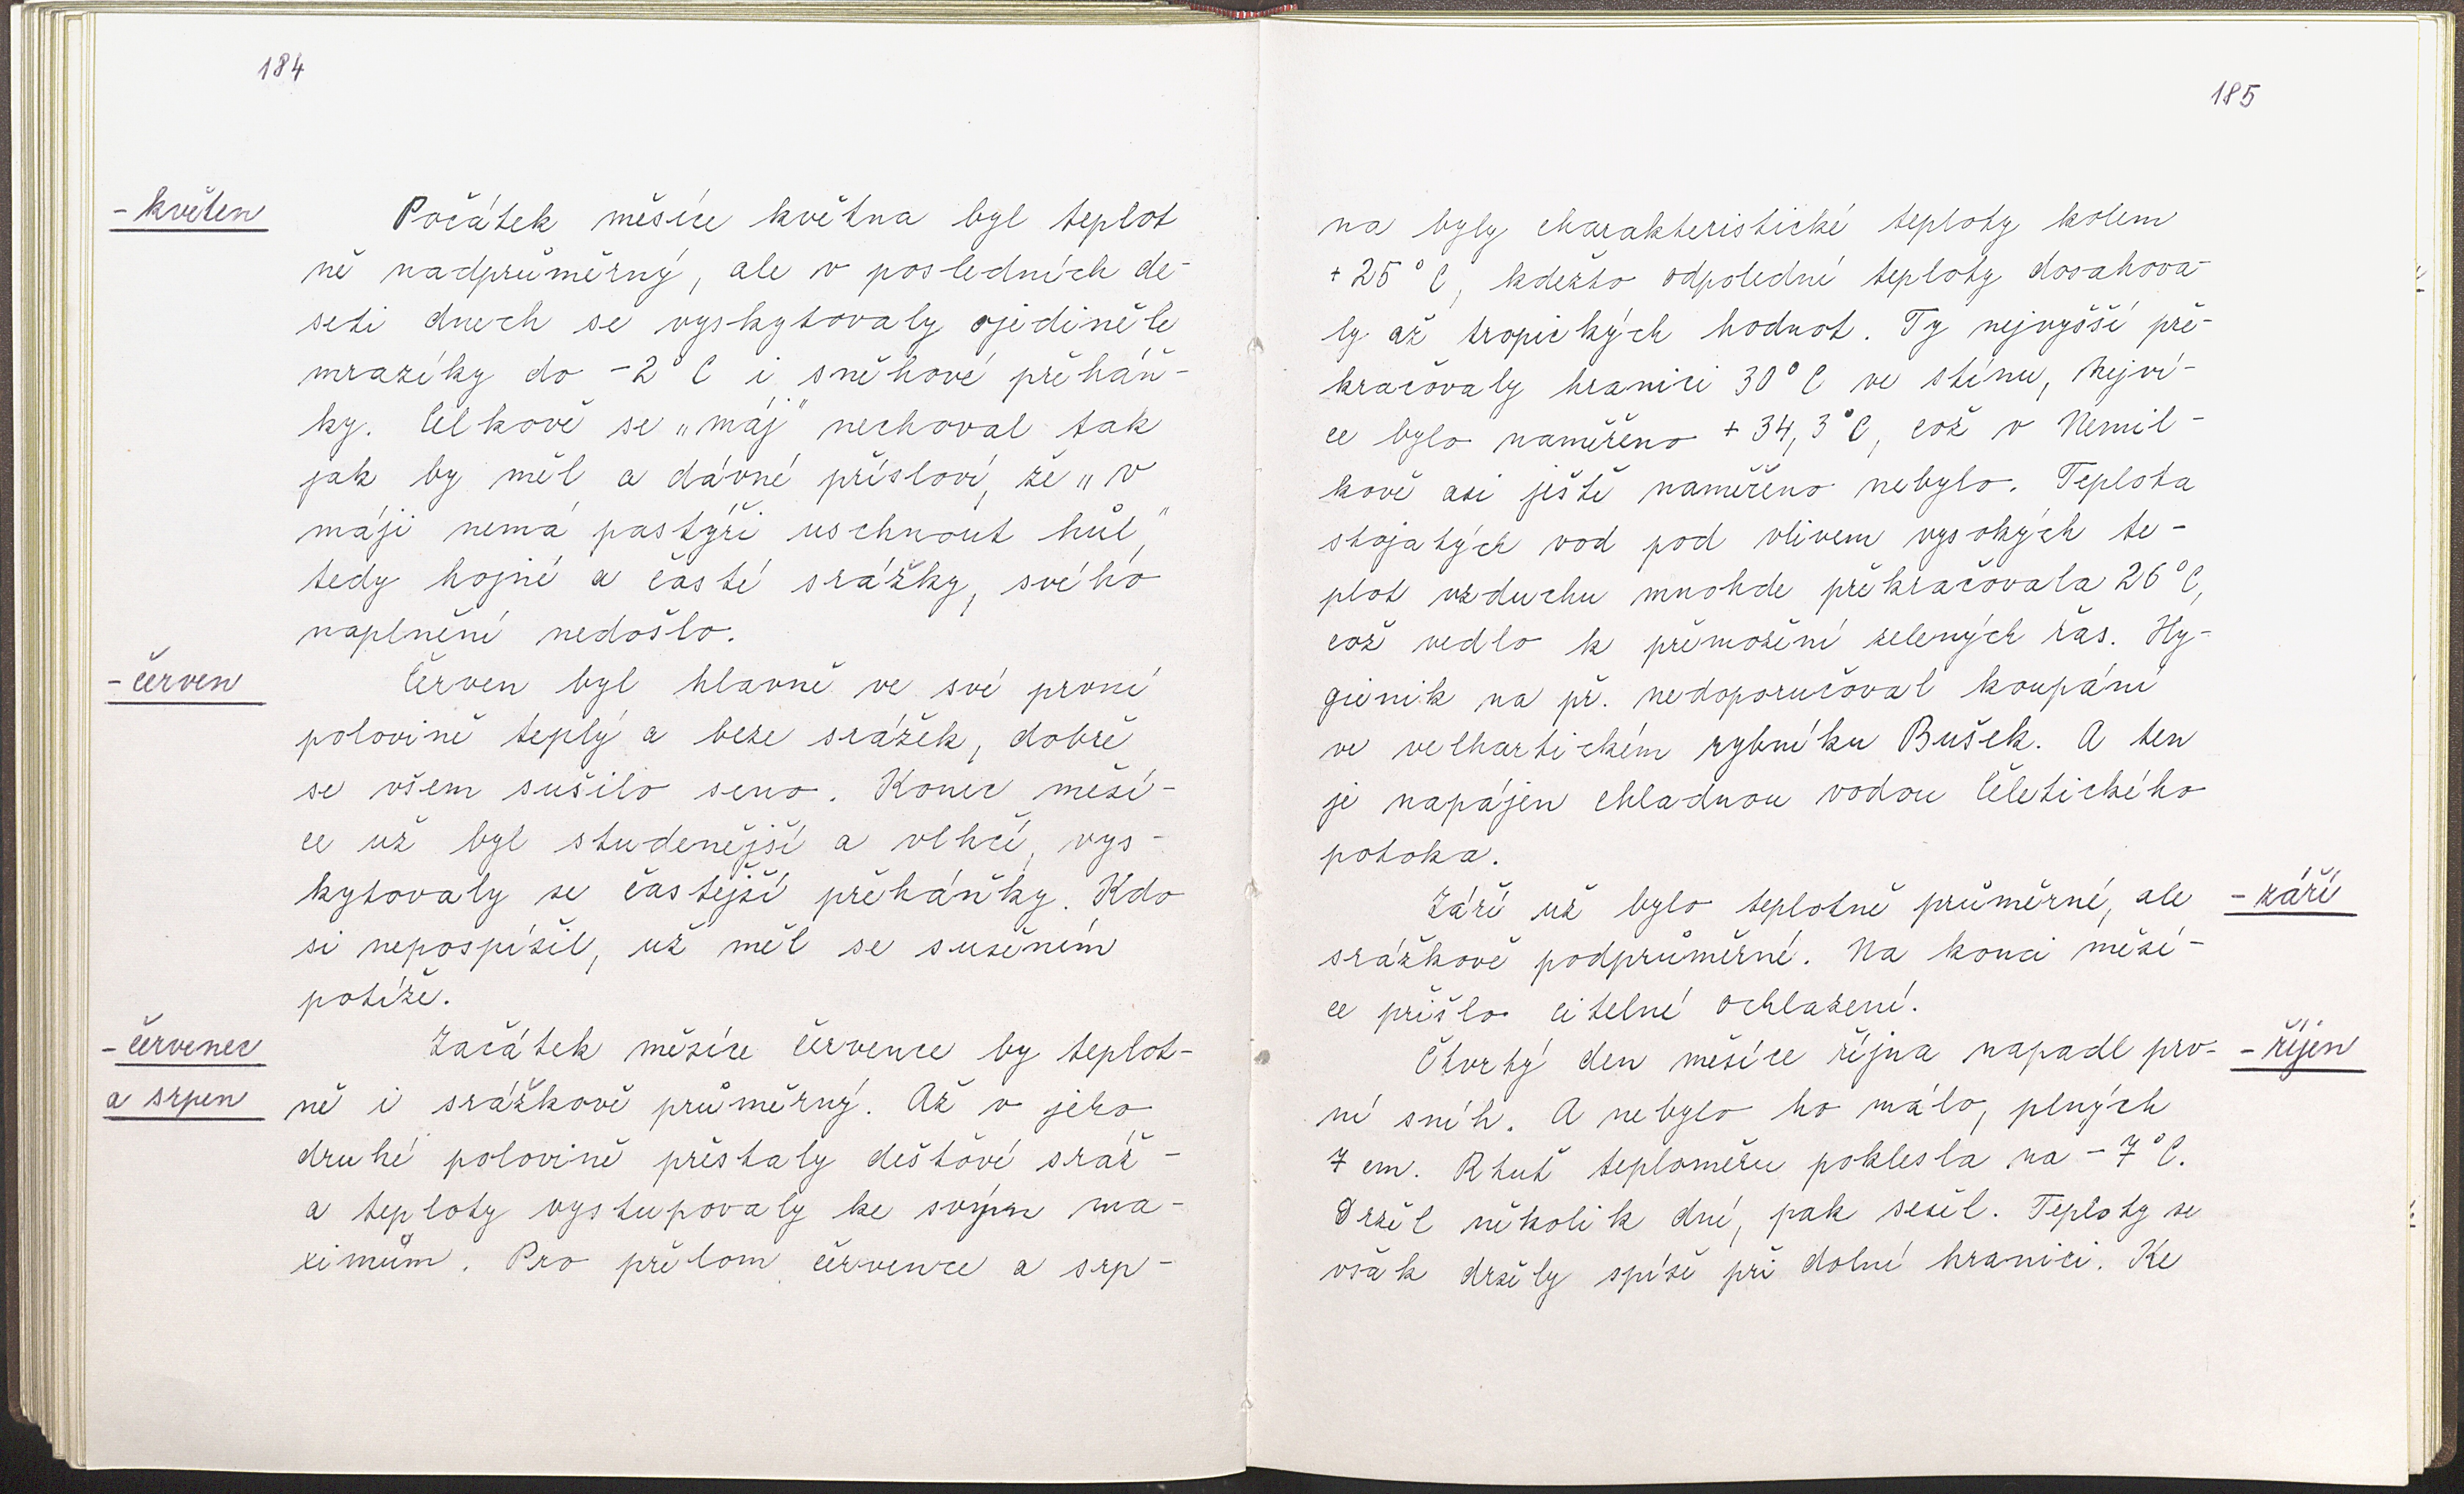 184
- květen
Počátek měsíce května byl teplot
ně nadprůměrný, ale v posledních de-
seti dnech se vyskytovaly ojediněle
mrazíky do -2°C i sněhové přeháň-
ky. Celkově se „máj" nechoval tak
jak by měl a dávné přísloví, že „v
máji nemá pastýři uschnout hůl",
tedy hojné a časté srážky, svého
naplnění nedošlo.
- červen
Červen byl hlavně ve své první
polovině teplý a beze srážek, dobře
se všem sušilo seno. Konec měsí-
ce už byl studenější a vlhčí, vys-
kytovaly se častější přeháňky. Kdo
si nepospíšil, už měl se sušením
potíže.
- červenec
a srpen
Začátek měsíce července by teplot-
ně i srážkově průměrný. Až v jeho
druhé polovině přestaly dešťové sráž-
a teploty vystupovaly ke svým ma-
ximům. Pro přelom července a srp-
185
na byly charakteristické teploty kolem
+25°C, kdežto odpolední teploty dosahova-
ly až tropických hodnot. Ty nejvyšší pře-
kračovaly hranici 30°C ve stínu, Nejví-
ce bylo naměřeno +34,3°C, což v Nemil-
kově asi ještě naměřeno nebylo. Teplota
stojatých vod pod vlivem vysokých te-
plot vzduchu mnohde překračovala 26°C,
což vedlo k přemožení zelených řas. Hy-
gienik na př. nedoporučoval koupání
ve velhartickém rybníku Bušek. A ten
je napájen chladnou vodou Čeletického
potoka.
Září už bylo teplotně průměrné, ale
- září
srážkově podprůměrné. Na konci měsí-
ce přišlo citelné ochlazení.
Čtvrtý den měsíce října napadl prv-
- říjen
ní sníh. A nebylo ho málo, plných
7 cm. Rtuť teploměru poklesla na -7°C.
Držel několik dní, pak sešel. Teploty se
však držely spíše při dolní hranici. Ke